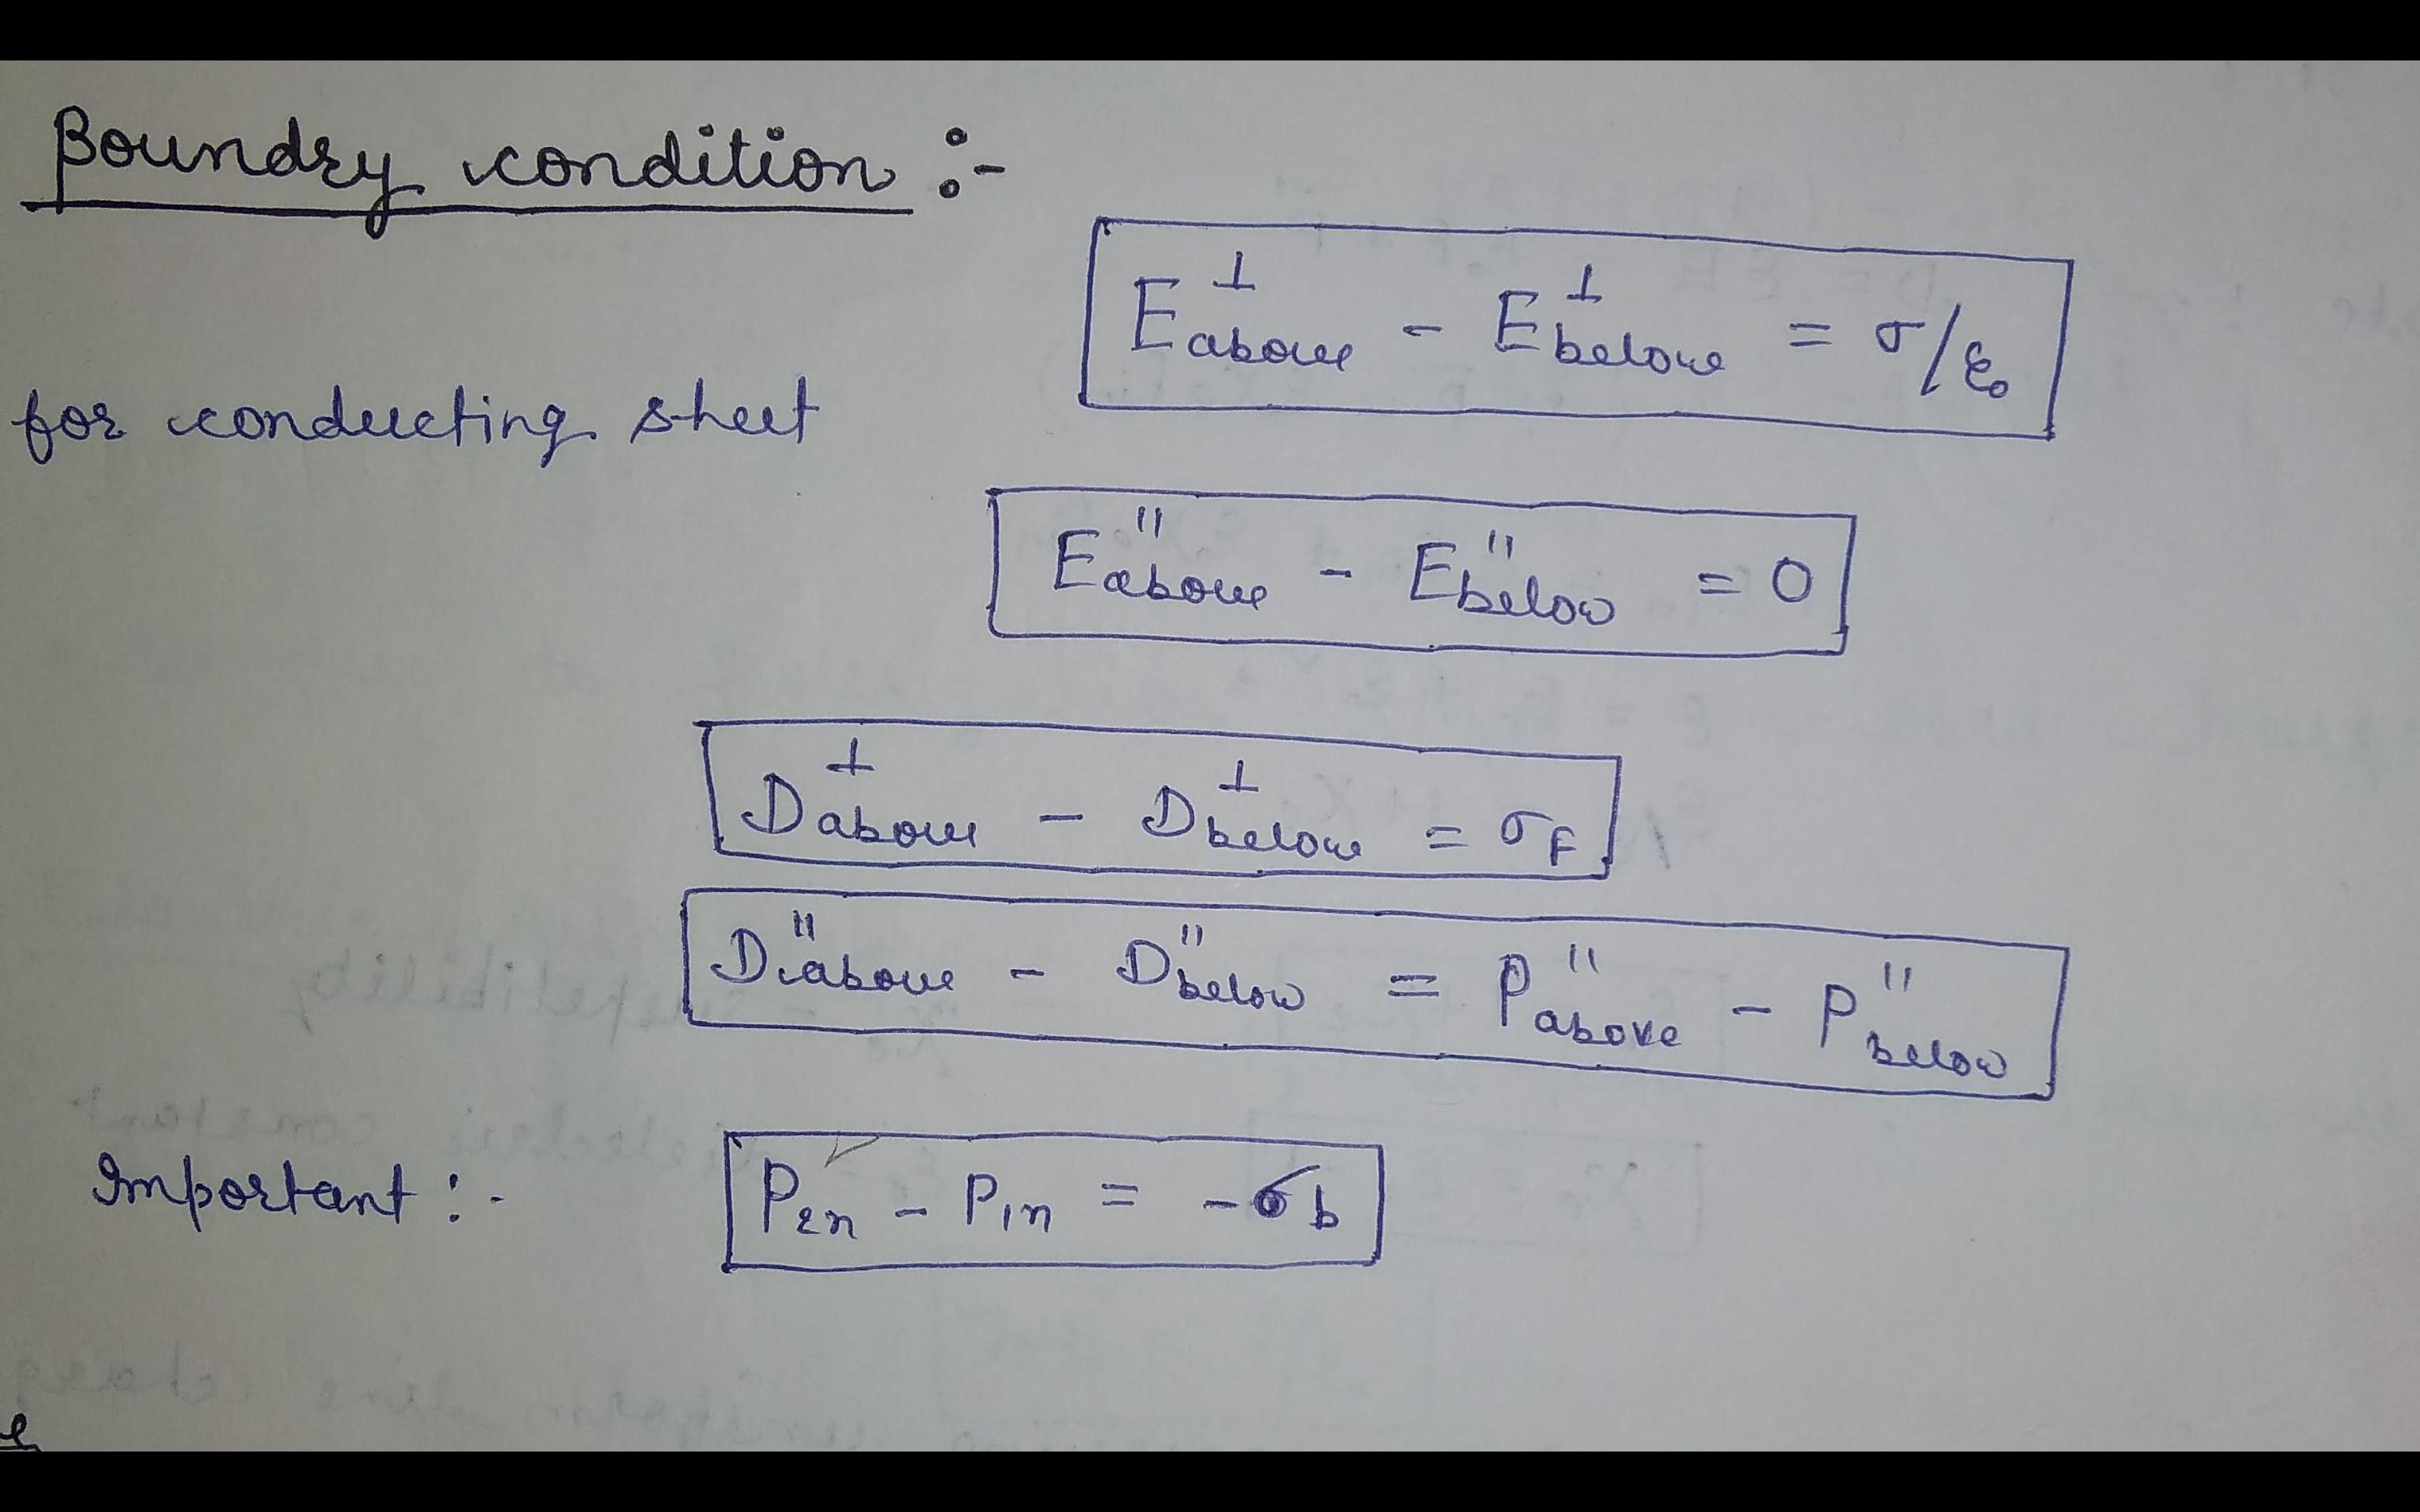 Boundry condition :-
E⊥above - E⊥below = σ/ε₀
for conducting sheet
E"above - E"below = 0
D⊥above - D⊥below = σF
D"above - D"below = P"above - P"below
Important :- P2n - P1n = -σb